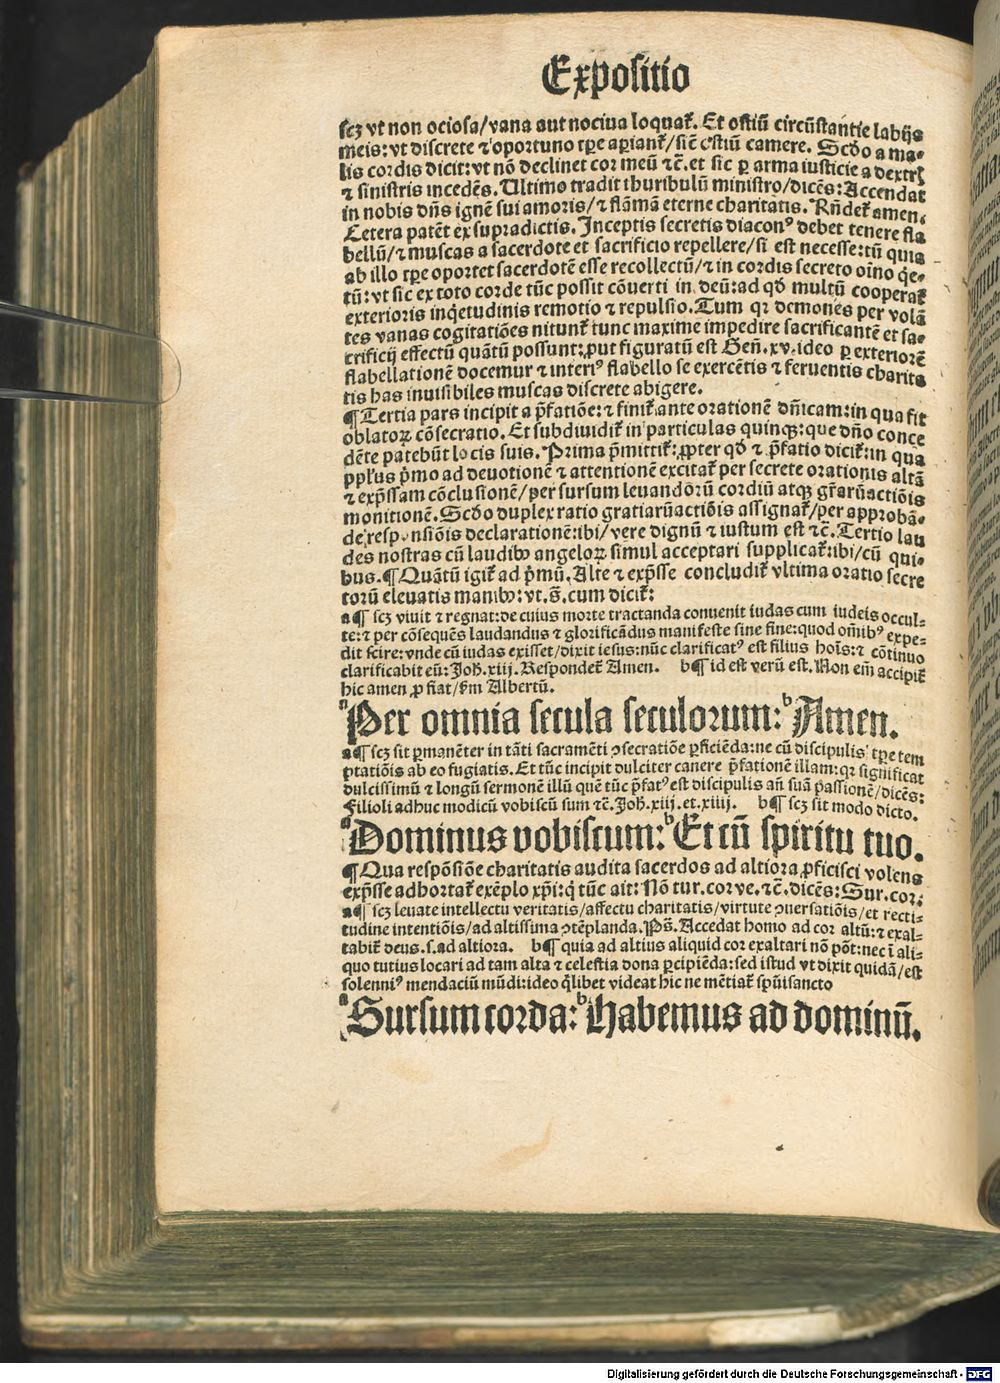 Expositio
ſcꝫ vt non ocioſa/vana aut nociua loquat᷑. Et oſtiū circūſtantie labijs
meis: vt diſcrete ⁊ oportuno tꝑe aꝑiant᷑/ſic̄ c̄ oſtiū camere. Scd̄o a ma-
lis cordis dicit: vt nō declinet cor meū ⁊c̄. et ſic ꝑ arma iuſticie a dextrꝭ
⁊ ſiniſtris incedēs. Ultimo tradit thuribulū miniſtro/dicēs: Accendat
in nobis dn̄s ignē ſui amoris/⁊ flāmā eterne charitatis. Rn̄det᷑ amen.
Cetera patēt ex ſupradictis. Inceptis ſecretis diaconꝰ debet tenere fla
bellū/⁊ muſcas a ſacerdote et ſacrificio repellere/ſi eſt neceſſe: tū quia
ab illo tꝑe oportet ſacerdotē eſſe recollectū/⁊ in cordis ſecreto oīno q̇e-
tū: vt ſic ex toto corde tūc poſſit cōuerti in deū: ad qd̄ multū cooperat᷑
exterioris inq̇etudinis remotio ⁊ repulſio. Tum qꝛ demones per volā
tes vanas cogitatiōes nitunt᷑ tunc maxime impedire ſacrificantē et ſa-
crificij effectū quātū poſſunt: ꝓut figuratū eſt Geń. xv. ideo ꝑ exteriorē
flabellationē docemur ⁊ interiꝰ flabello ſe exercētis ⁊ feruentis charita
tis has inuiſibiles muſcas diſcrete abigere.
¶ Tertia pars incipit a p̄fatiōe: ⁊ finit᷑ ante orationē dn̄icam: in qua fit
oblatoꝝ cōſecratio. Et ſubdiuidit᷑ in particulas quinqꝫ: que dn̄o conce
dēte patebūt locis ſuis. Prima p̄mittit᷑: ꝓpter qd̄ ⁊ p̄fatio dicit᷑: in qua
ppl̓us p̓mo ad deuotionē ⁊ attentionē excitat᷑ per ſecrete orationis altā
⁊ exp̄ſſam cōcluſionē/per ſurſum leuandōrū cordiū atqꝫ gr̄arūactiōis
monitionē. Scd̄o duplex ratio gratiarūactiōis aſſignat᷑/per approbā-
de reſponſiōis declarationē: ibi/vere dignū ⁊ iuſtum eſt ⁊c̄. Tertio lau
des noſtras cū laudibꝰ angeloꝝ ſimul acceptari ſupplicat᷑: ibi/cū qui-
bus. ¶ Quātū igit᷑ ad p̓mū. Alte ⁊ exp̄ſſe concludit᷑ vltima oratio ſecre
torū eleuatis manibꝰ: vt. s̄. cum dicit᷑:
a¶ ſcꝫ viuit ⁊ regnat: de cuius morte tractanda conuenit iudas cum iudeis occul-
te: ⁊ per cōſequēs laudandus ⁊ glorificādus manifeſte ſine fine: quod om̄ibꝰ expe-
dit ſcire: vnde cū iudas exiſſet/dixit ieſus: nūc clarificatꝰ eſt filius hoīs: ⁊ cōtinuo
clarificabit eū: Joh̄. xiij. Reſpondet᷑ Amen. b¶ id eſt verū eſt. Non em̄ accipit᷑
hic amen ꝓ fiat/ſm̄ Albertū.
a Per omnia ſecula ſeculorum: b Amen.
a¶ ſcꝫ ſit ꝑmanēter in tāti ſacramēti ꝯſecratiōe ꝑficiēda: ne cū diſcipulis tꝑe tem
ptatiōis ab eo fugiatis. Et tūc incipit dulciter canere p̄fationē illam: qꝛ ſignificat
dulciſſimū ⁊ longū ſermonē illū quē tūc p̄fatꝰ eſt diſcipulis an̄ ſuā paſſionē/dicēs:
Filioli adhuc modicū vobiſcū ſum ⁊c̄. Joh̄. xiij. et. xiiij. b¶ ſcꝫ ſit modo dicto.
a Dominus vobiſcum: b Et cū ſpiritu tuo.
¶ Qua reſpōſiōe charitatis audita ſacerdos ad altiora ꝓficiſci volens
exp̄ſſe adhortat᷑ exēplo xp̄i: q̇ tūc ait: Nō tur. cor ve. ⁊c̄. dicēs: Sur. cor:
a¶ ſcꝫ leuate intellectu veritatis/affectu charitatis/virtute ꝯuerſatiōis/et recti-
tudine intentiōis/ad altiſſima ꝯtēplanda. Ps̄. Accedat homo ad cor altū: ⁊ exal-
tabit᷑ deus. ſ. ad altiora. b¶ quia ad altius aliquid cor exaltari nō pōt: nec ī ali-
quo tutius locari ad tam alta ⁊ celeſtia dona ꝑcipiēda: ſed iſtud vt dixit quidā/eſt
ſolenniꝰ mendaciū mūdi: ideo q̇libet videat hic ne mētiat᷑ ſpūiſancto
a Surſum corda: b Habemus ad dominū.
Digitalisierung gefördert durch die Deutsche Forschungsgemeinschaft - DFG